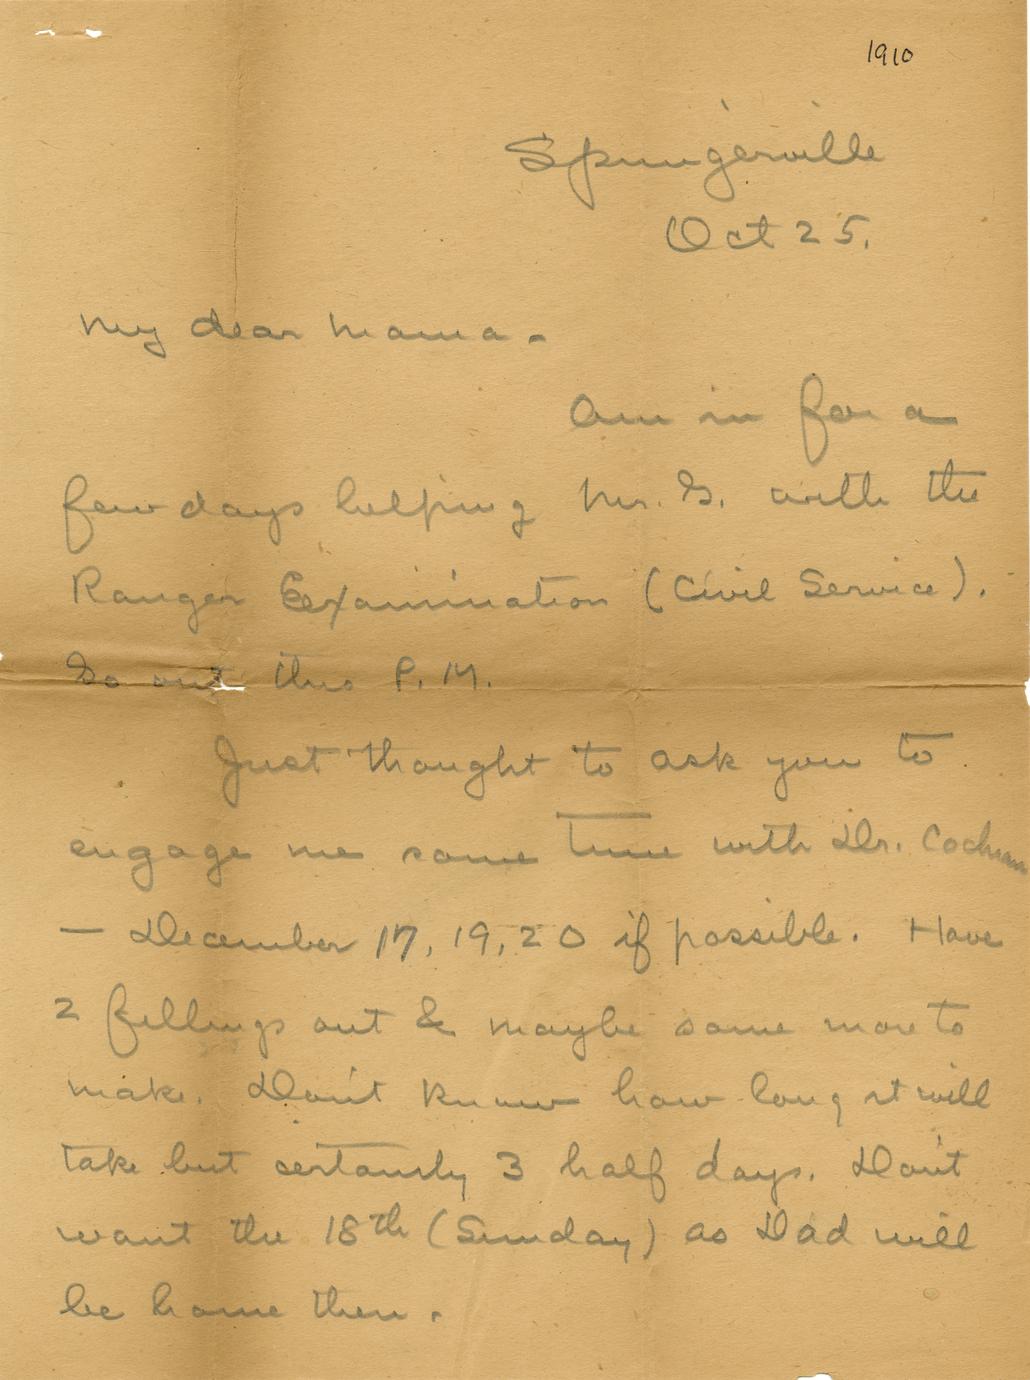 1910
Springerville
Oct 25.
My dear Mama -
Am in for a
few days helping Mr. G. with the
Ranger Examination (Civil Service).
Go out this P.M.
Just thought to ask you to
engage me some time with Dr. Cochran
— December 17, 19, 20 if possible. Have
2 fillings out & maybe some more to
make. Don't know how long it will
take but certainly 3 half days. Don't
want the 18th (Sunday) as Dad will
be home then.